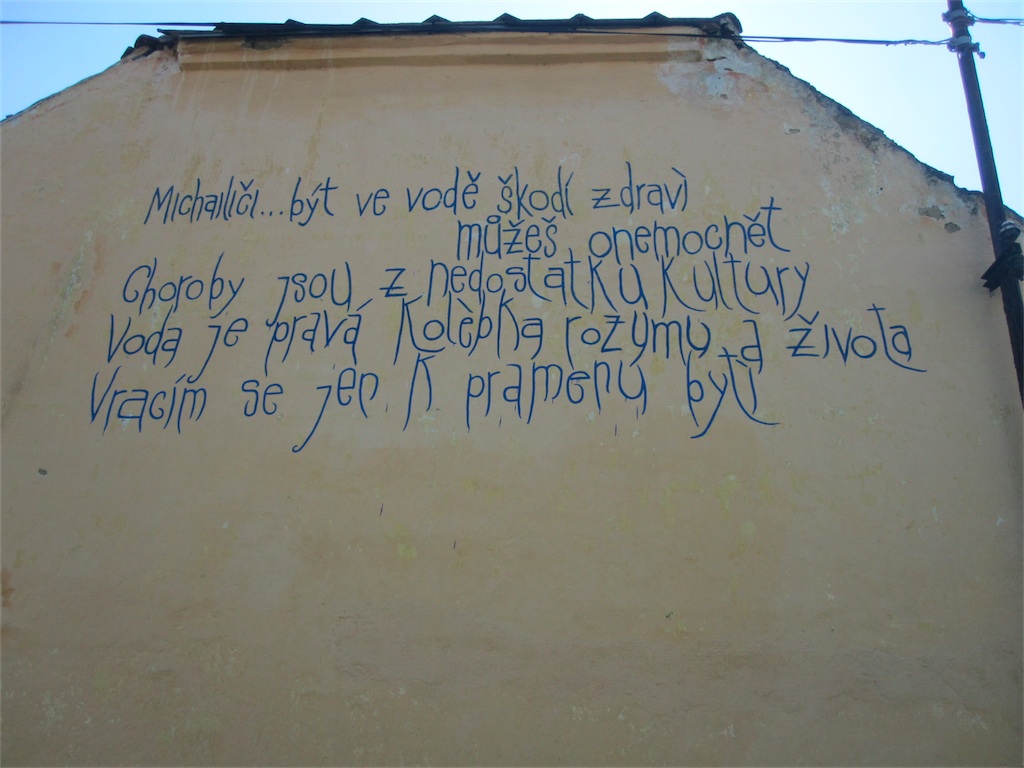 Michajliči...být ve vodě škodí zdravì
můžeš onemocnět
Choroby jsou z nedostatku kultury
Voda je pravá kolèbka rozumu a života
Vracím se jen k pramenu bytí